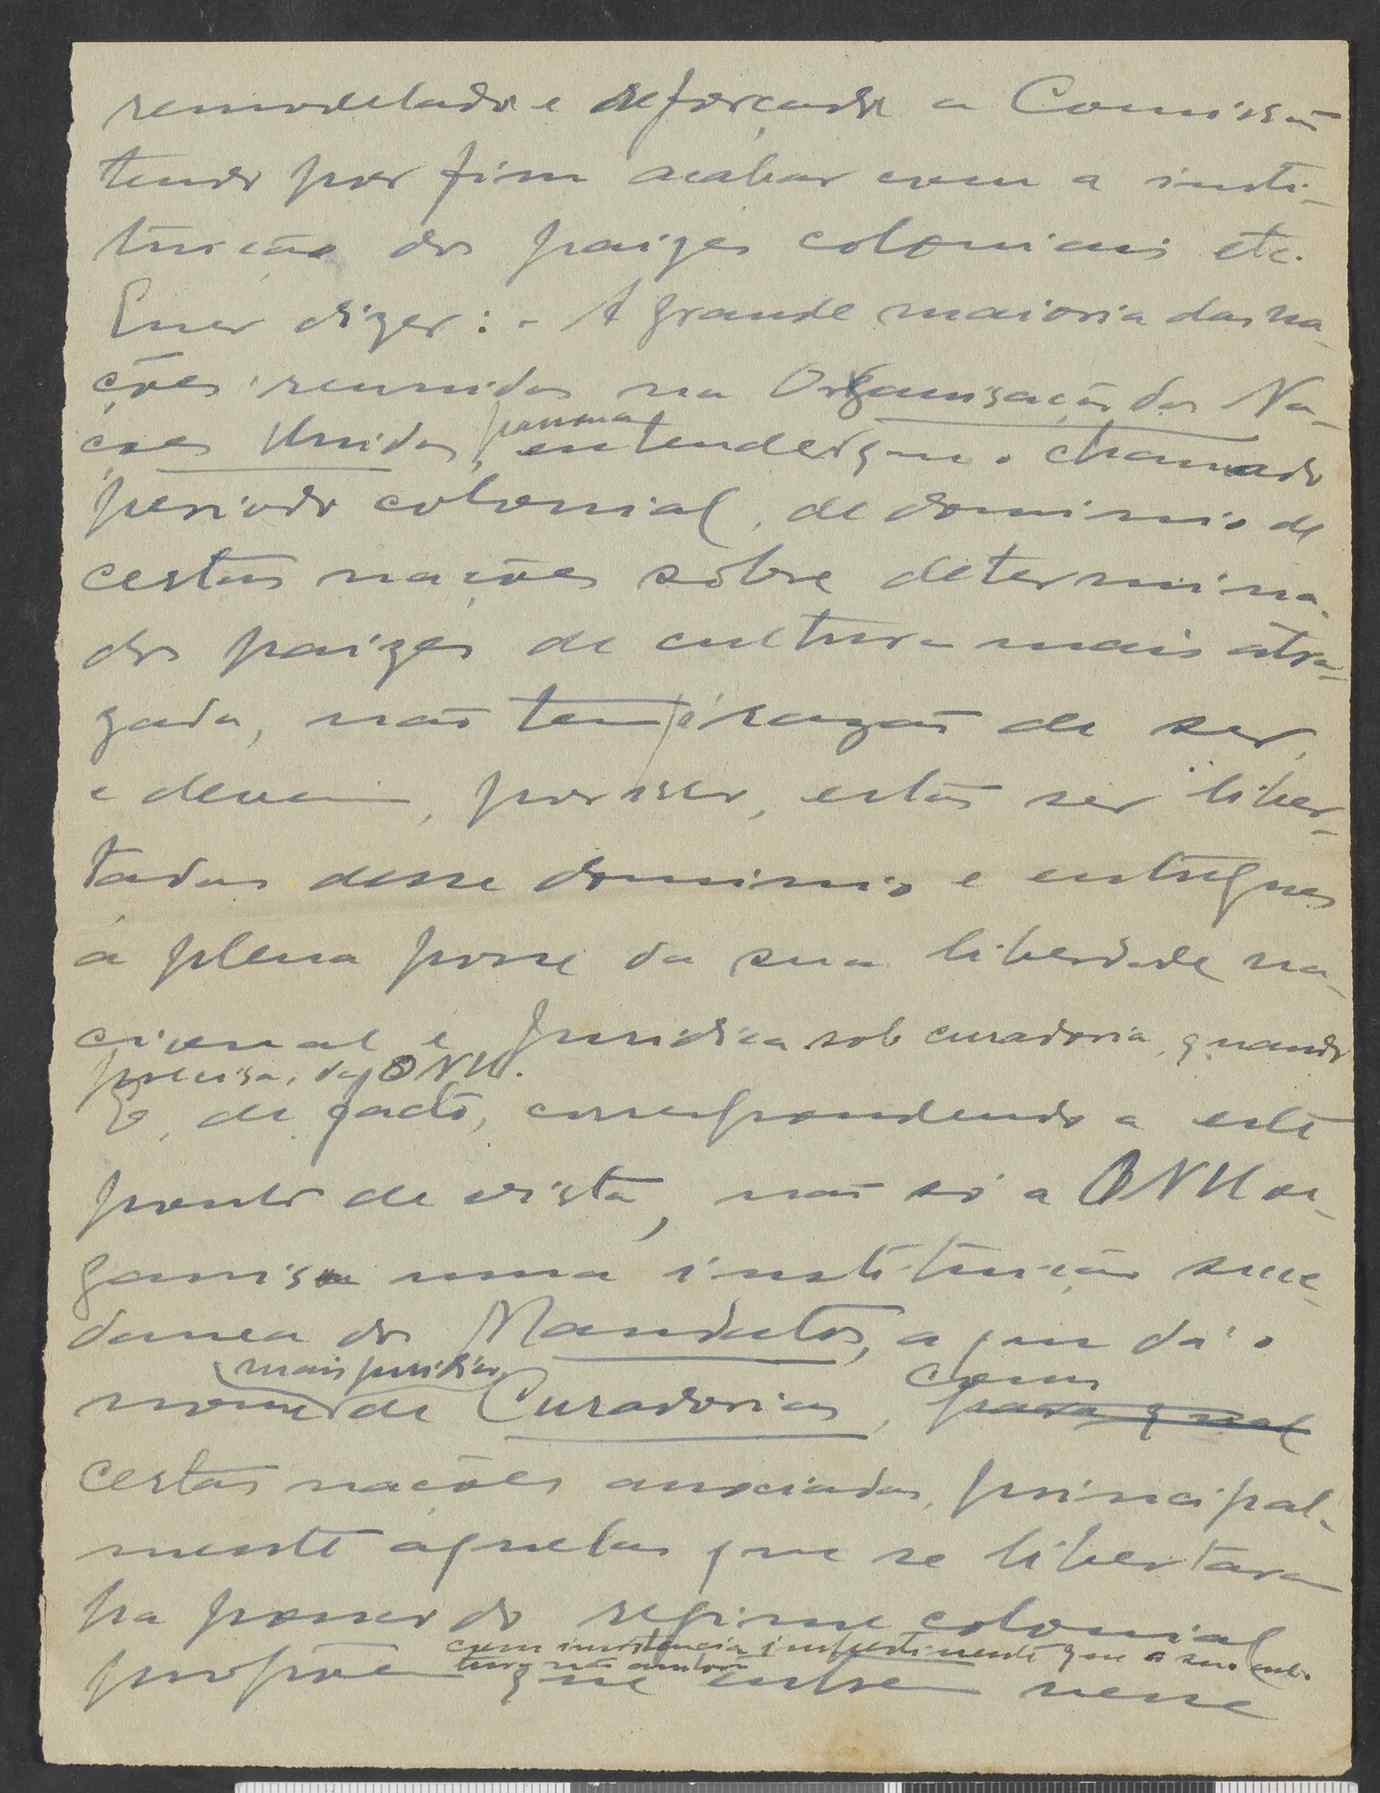 remodelado e reforçado a Comissão
tendo por fim acabar com a insti-
tuição dos paizes coloniais etc.
Quer dizer: - A grande maioria das na-
ções reunidas na Organisação das Na-
ções Unidas, entender que o chamado
período colonial, de dominio de
certas nações sôbre determina-
dos paizes de cultura mais atra-
zada, não tem razão de ser,
e devem, por isso, estas ser liber-
tadas desse dominio e entregues
á plena posse da sua liberdade na-
cional e juridica sob curadoria, quando
precisa, da ONU.
E, de facto, correspondendo a este
ponto de vista, não só a ONU or-
ganisa uma instituição suce-
danea dos Mandatos, a que dá o
mais juridico com
nome de Curadorias, para qual
certas nações associadas, principal-
mente aquelas que se libertaram
ha pouco do regime colonial
com insistencia impertinente que o seu
propõem que entrem nesse